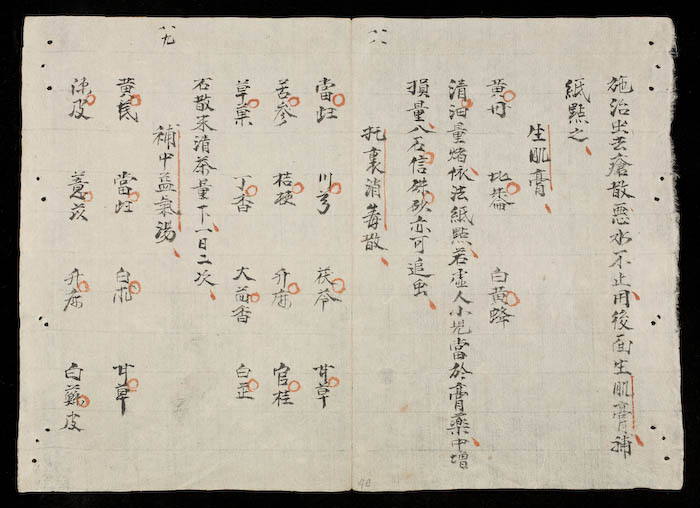 施治出去瘡散惡水不止用後面生肌膏補
紙點之
生肌膏
黄丹 白黄蜂
清油量熬依法紙點若虛人小児當於膏藥中增
損量人子信硃砂亦可追出
托裏消毒散
當歸 川芎 茯苓 甘草
苦參 桔梗 升麻 官桂
草菓 丁香 大茴香 白芷
右散末清茶量下一日二次
補中益氣湯
黄芪 當歸 白朮 甘草
陳皮 薏苡 升麻 白蘚皮